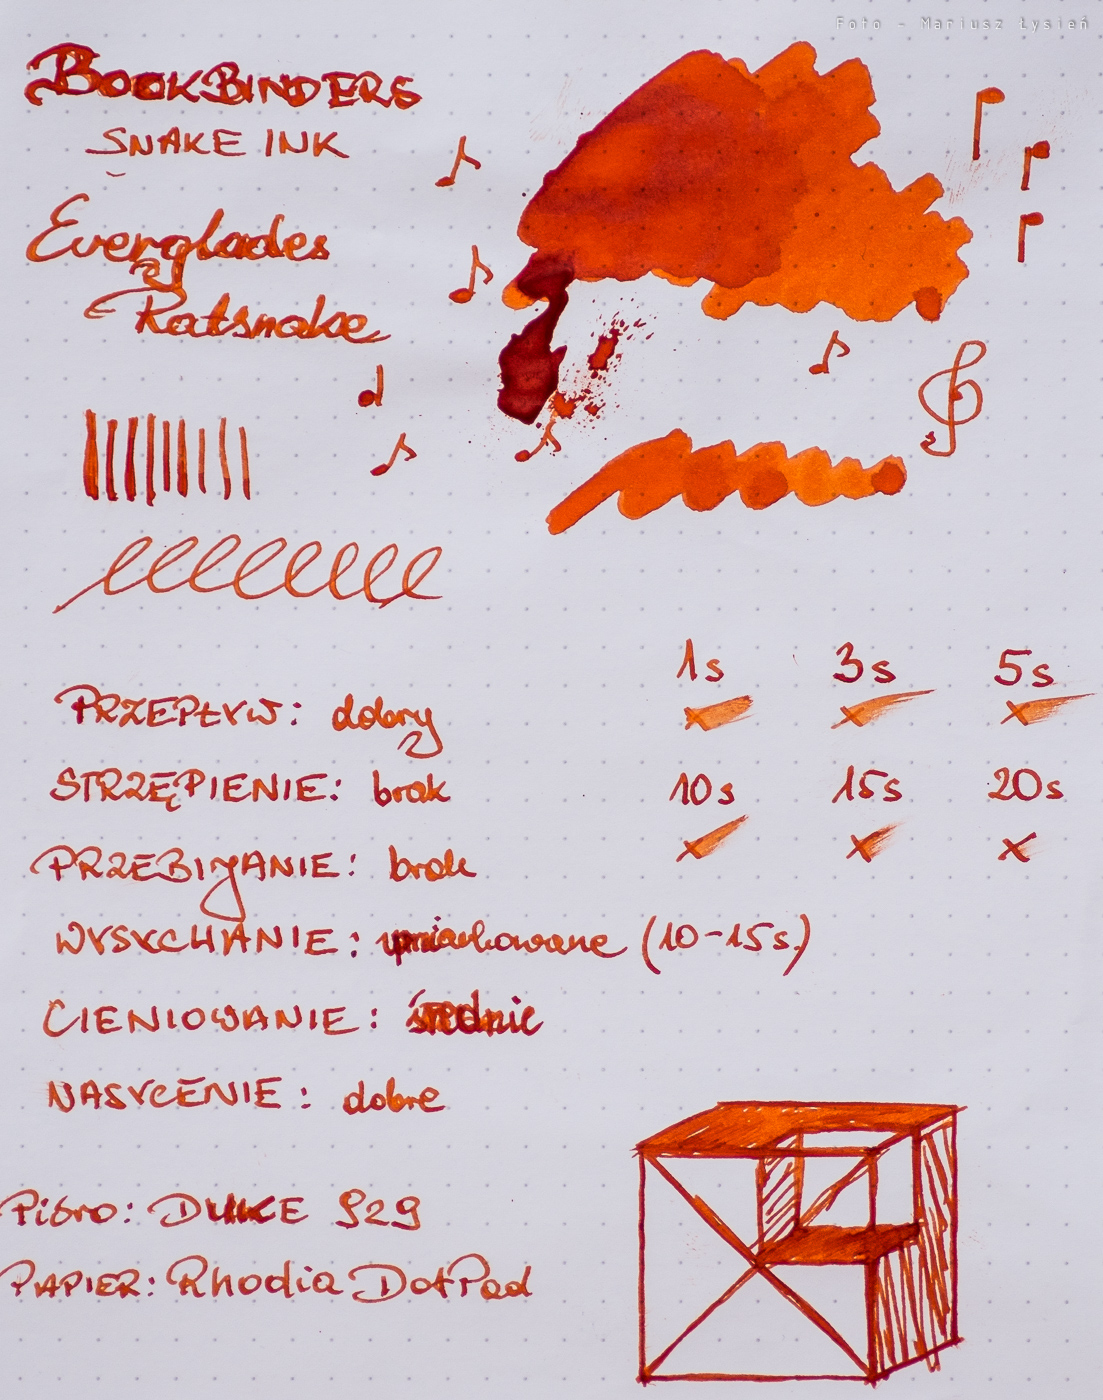 Foto - Mariusz Łysień
BOOKBINDERS
SNAKE INK
Everglades
Ratsnake
1s 3s 5s
PRZEPŁYW: dobry
STRZĘPIENIE: brak
10s 15s 20s
PRZEBIJANIE: brak
WYSYCHANIE: umiarkowane (10-15s.)
CIENIOWANIE: średnie
NASYCENIE: dobre
Pióro: DUKE 929
PAPIER: Rhodia DotPad